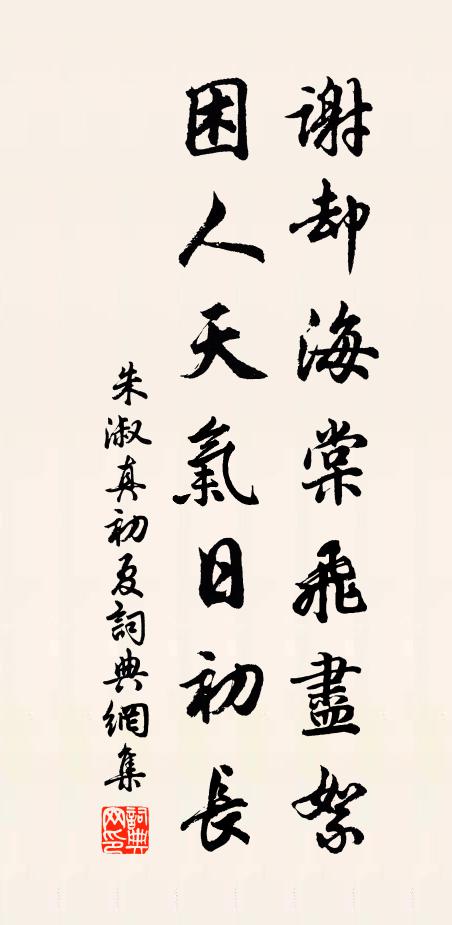 謝却海棠飛盡絮
困人天氣日初長
朱淑真初夏詞典網集
詞典網印